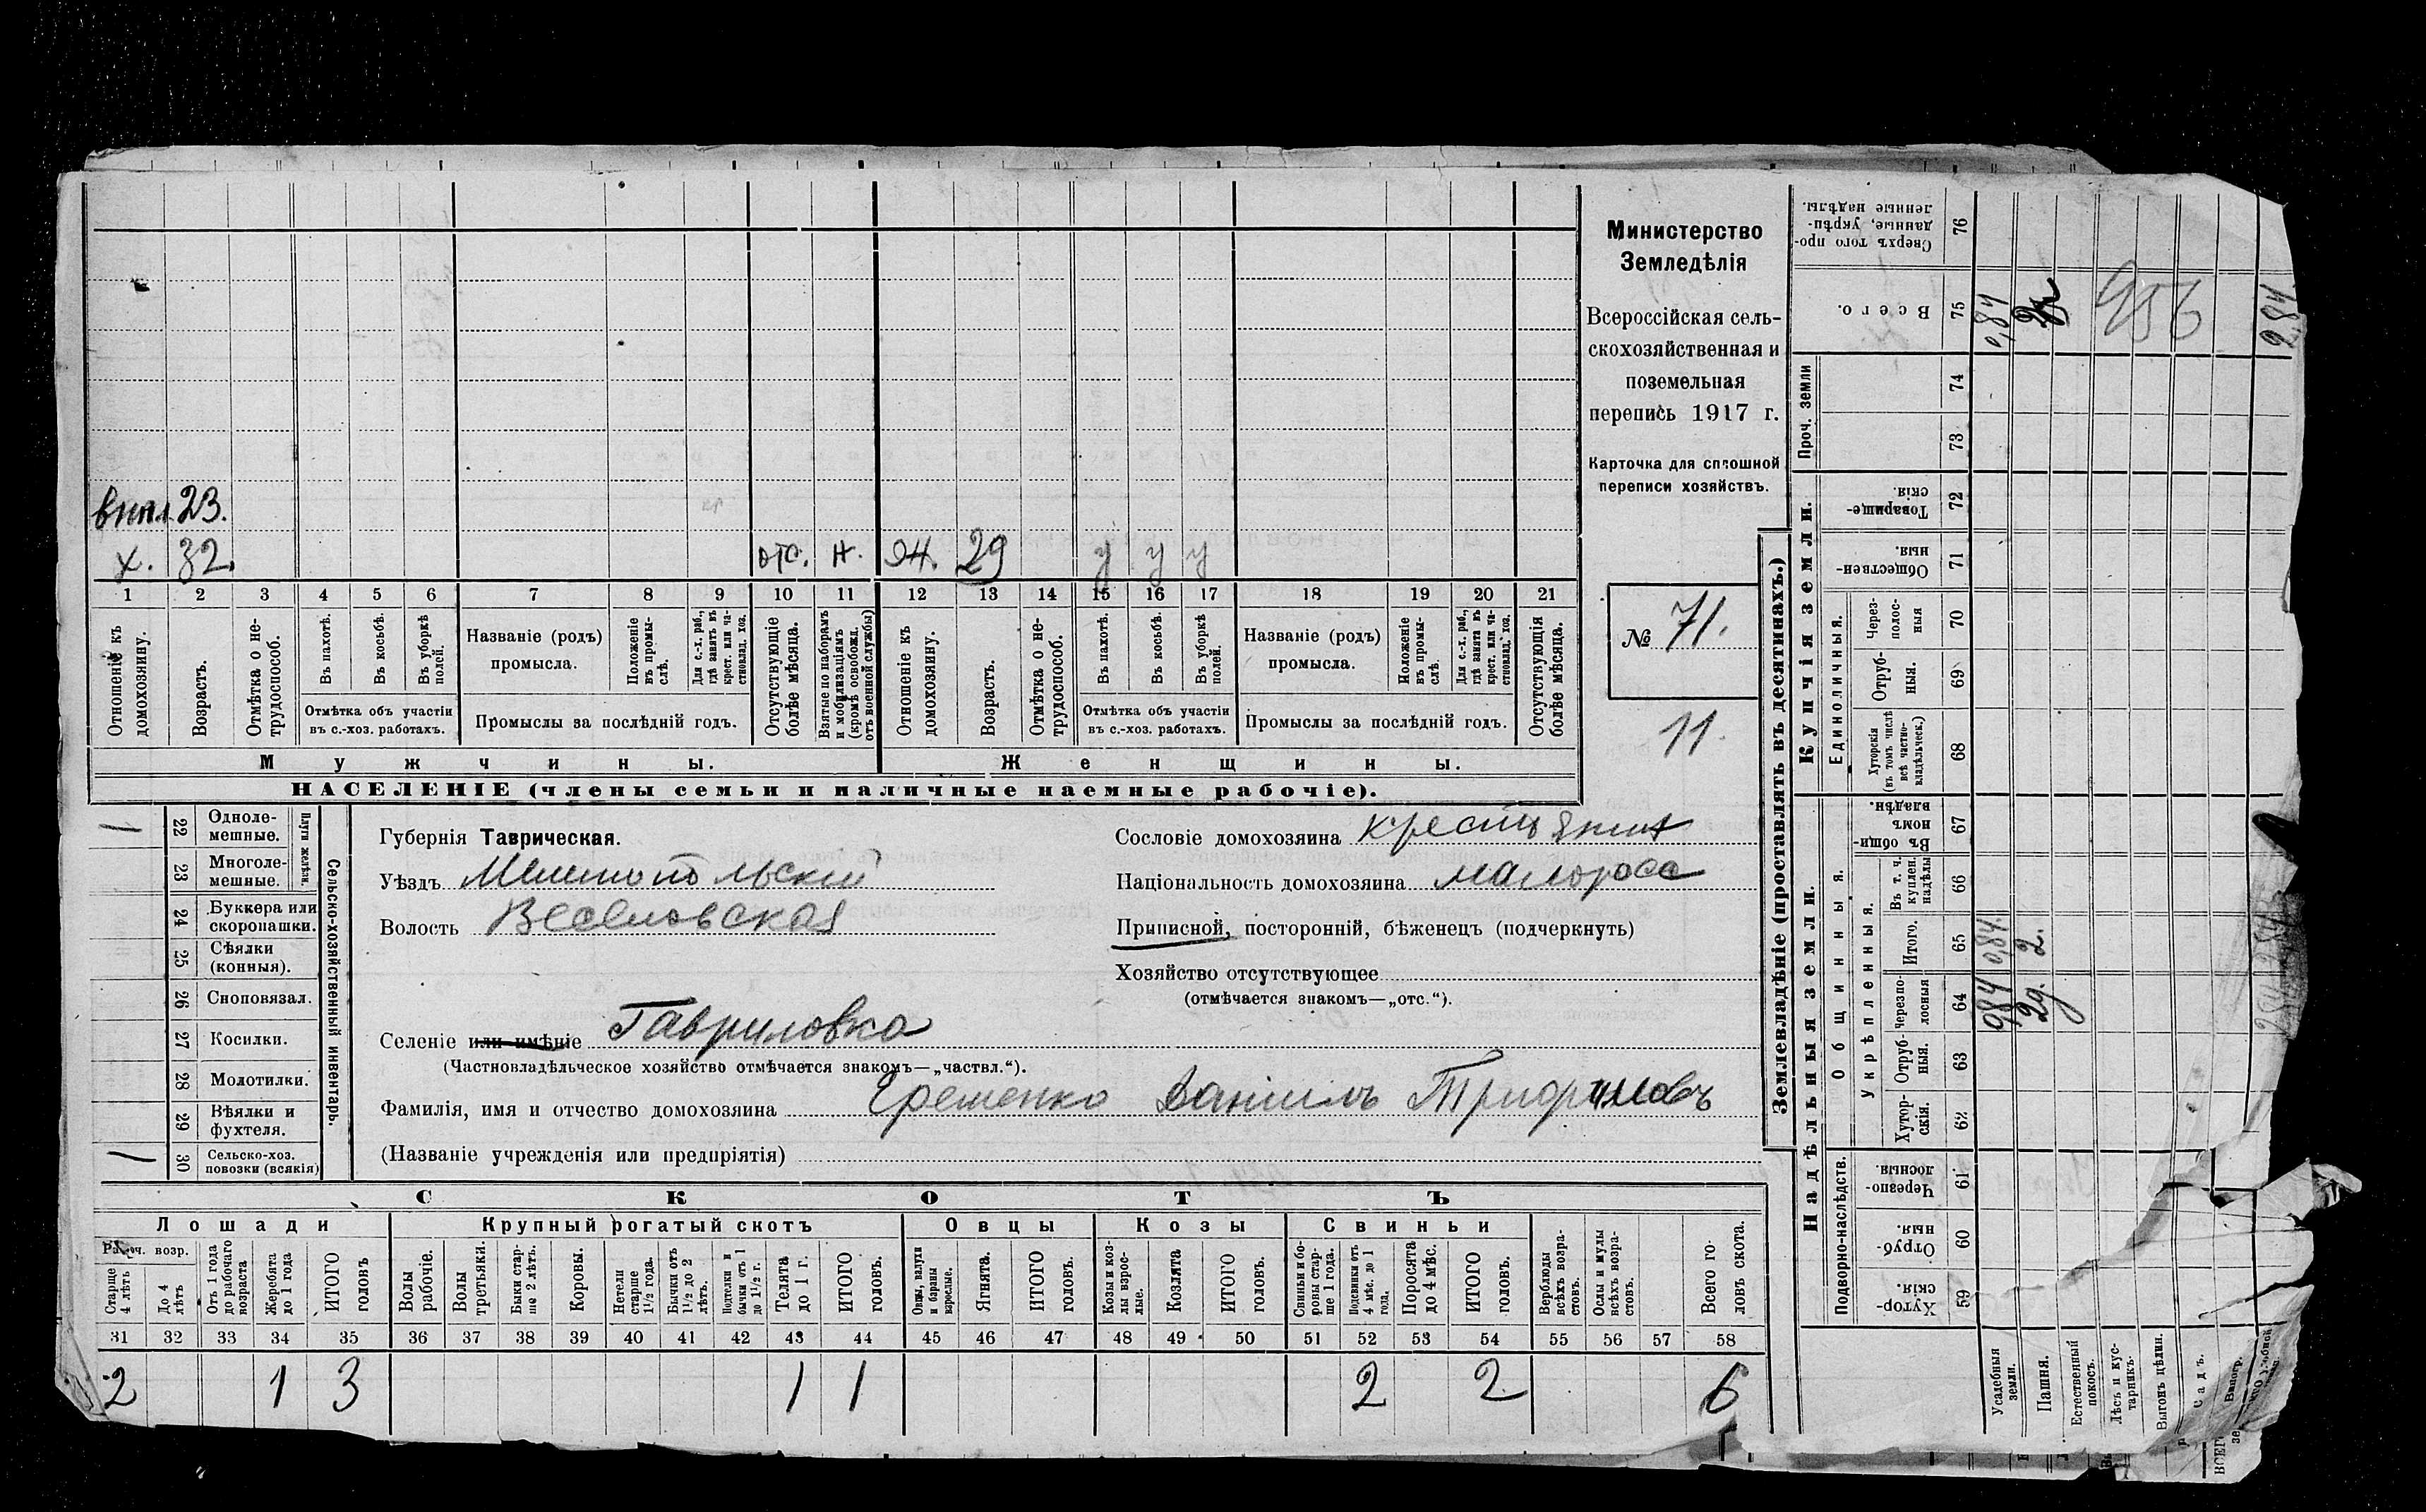 Министерство
Земледѣлія
Всероссійская сель-
скохозяйственная и
поземельная
перепись 1917 г.
Карточка для сплошной
переписи хозяйствъ.
№ 71.
11.
23.
х. 32. отс. н. ж. 29 у у у
1 2 3 4 5 6 7 8 9 10 11 12 13 14 15 16 17 18 19 20 21
Отношеніе къ домохозяину.
Возрастъ.
Отмѣтка о не-трудоспособ.
Въ пахотѣ.
Въ косьбѣ.
Въ уборкѣ полей.
Отмѣтка объ участіи
въ с.-хоз. работахъ.
Названіе (родъ)
промысла.
Положеніе въ промы-слѣ.
Для с.-х. раб., гдѣ занятъ въ крест. или ча-стновлад. хоз.
Промыслы за послѣдній годъ.
Отсутствующіе болѣе мѣсяца.
Взятые по наборамъ и мобилизаціямъ (кромѣ освобожд. отъ военной службы)
Отношеніе къ домохозяину.
Возрастъ.
Отмѣтка о не-трудоспособ.
Въ пахотѣ.
Въ косьбѣ.
Въ уборкѣ полей.
Отмѣтка объ участіи
въ с.-хоз. работахъ.
Названіе (родъ)
промысла.
Положеніе въ промы-слѣ.
Для с.-х. раб., гдѣ занята въ крест. или ча-стновлад. хоз.
Промыслы за послѣдній годъ.
Отсутствующія болѣе мѣсяца.
Мужчины.
Женщины.
НАСЕЛЕНІЕ (члены семьи и наличные наемные рабочіе).
Сельско-хозяйственный инвентарь.
Плуги желѣзн.
22 Одноле-мешные.
23 Многоле-мешные.
24 Буккера или скоропашки.
25 Сѣялки (конныя).
26 Сноповязал.
27 Косилки.
28 Молотилки.
29 Вѣялки и фухтеля.
30 Сельско-хоз. повозки (всякія)
Губернія Таврическая.
Уѣздъ Мелитопольскій
Волость Веселовская
Сословіе домохозяина крестьянин
Національность домохозяина малоросс
Приписной, посторонній, бѣженецъ (подчеркнуть)
Хозяйство отсутствующее
(отмѣчается знакомъ—„отс.“).
Селеніе или имѣніе Гавриловка
(Частновладѣльческое хозяйство отмѣчается знакомъ—„частвл.“).
Фамилія, имя и отчество домохозяина Еременко Даніилъ Трифиловъ
(Названіе учрежденія или предпріятія)
СКОТЪ
Лошади
Крупный рогатый скотъ
Овцы
Козы
Свиньи
Рабоч. возр.
Старше 4 лѣтъ
До 4 лѣтъ
Отъ 1 года до рабочаго возраста
Жеребята до 1 года
ИТОГО головъ
Волы рабочіе.
Волы третьяки.
Быки стар-ше 2 лѣтъ.
Коровы.
Нетели старше 1½ года.
Бычки отъ 1½ до 2 лѣтъ.
Подтелки и бычки отъ 1 до 1½ г.
Телята до 1 г.
ИТОГО головъ.
Овцы, валухи и бараны взрослые.
Ягнята.
ИТОГО головъ.
Козы и коз-лы взрос-лые.
Козлята
ИТОГО головъ.
Свиньи и бо-ровы стар-ше 1 года.
Подсвинки отъ 4 мѣс. до 1 года.
Поросята до 4 мѣс.
ИТОГО головъ.
Верблюды всѣхъ возра-стовъ.
Ослы и мулы всѣхъ возра-стовъ.
Всего го-ловъ скота.
31 32 33 34 35 36 37 38 39 40 41 42 43 44 45 46 47 48 49 50 51 52 53 54 55 56 57 58
2 1 3 1 1 2 2 6
Землевладѣніе (проставлять въ десятинахъ.)
Надѣльныя земли.
Купчія земли.
Проч. земли
Подворно-наслѣдств.
Общинныя.
Укрѣпленныя.
Единоличныя.
59 Хутор-скія.
60 Отруб-ныя.
61 Черезпо-лосныя.
62 Хутор-скія.
63 Отруб-ныя.
64 Черезпо-лосныя
65 Итого.
66 Въ т. ч. куплен. надѣлы
67 Въ общи-номъ владѣн.
68 Хуторскія (въ томъ числѣ всѣ частно-владѣльческ.)
69 Отруб-ныя.
70 Через-полос-ныя
71 Обществен-ныя
72 Товарище-скія.
73
74
75 Всего.
76 Сверхъ того про-данные, укрѣп-ленные надѣлы.
Усадебныя земли. 0,84 0,84
Пашня. 2.
Естественный покосъ.
Лѣсъ и кус-тарникъ.
Выгонъ цѣлин.
Садъ.
Виногр.
956
2,84